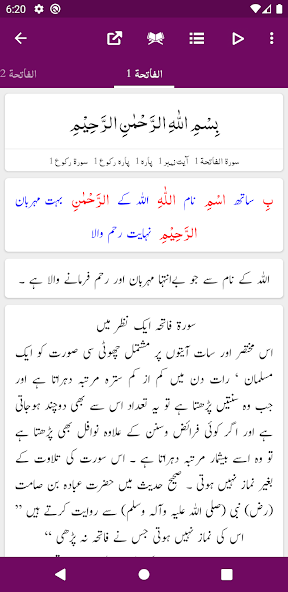 6:20
الفَاتحَة 1
الفَاتحَة 2
بِسْمِ اللّٰهِ الرَّحْمٰنِ الرَّحِيْمِ
سورة الفاتحة 1 آیت نمبر 1 پاره 1 پاره رکوع 1 سورة رکوع 1
بِ ساتھ اسْمِ نام اللّٰهِ اللہ کے الرَّحْمٰنِ بہت مہربان
الرَّحِيْمِ نہایت رحم والا
اللہ کے نام سے جو بےانتہا مہربان اور رحم فرمانے والا ہے ۔
سورة فاتحہ ایک نظر میں
اس مختصر اور سات آیتوں پر مشتمل چھوٹی سی صورت کو ایک
مسلمان ، رات دن میں کم از کم سترہ مرتبہ دہراتا ہے اور
جب وہ سنتیں پڑھتا ہے تو یہ تعداد اس سے بھی دوچند ہوجاتی
ہے اور اگر کوئی فرائض وسنن کے علاوہ نوافل بھی پڑھتا ہے
تو وہ اسے بیشار مرتبہ دہراتا ہے ۔ اس سورت کی تلاوت کے
بغیر نماز نہیں ہوتی ۔ صحیح حدیث میں حضرت عبادہ بن صامت
(رض) نبی (صلی اللہ علیہ وآلہ وسلم) سے روایت کرتے ہیں ”
اس کی نماز نہیں ہوتی جس نے فاتحہ نہ پڑھی “